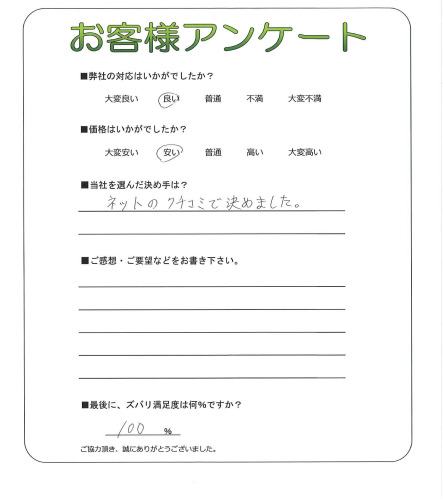 お客様アンケート
■弊社の対応はいかがでしたか？
大変良い 良い 普通 不満 大変不満
■価格はいかがでしたか？
大変安い 安い 普通 高い 大変高い
■当社を選んだ決め手は？
ネットのクチコミで決めました。
■ご感想・ご要望などをお書き下さい。
■最後に、ズバリ満足度は何%ですか？
100 %
ご協力頂き、誠にありがとうございました。